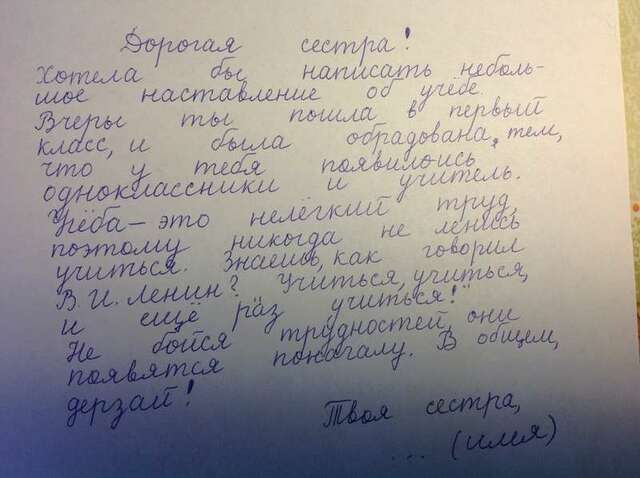 Дорогая сестра!
Хотела бы написать неболь-
шое наставление об учёбе.
Вчеры ты пошла в первый
класс, и была обрадована, тем,
что у тебя появилоись
одноклассники и учитель.
Учёба – это нелёгкий труд,
поэтому никогда не ленись
учиться. Знаешь, как говорил
В. И. Ленин? Учиться, учиться,
и ещё раз учиться!"
Не бойся трудностей, они
появятся поначалу. В общем,
дерзай!
Твоя сестра,
... (имя)